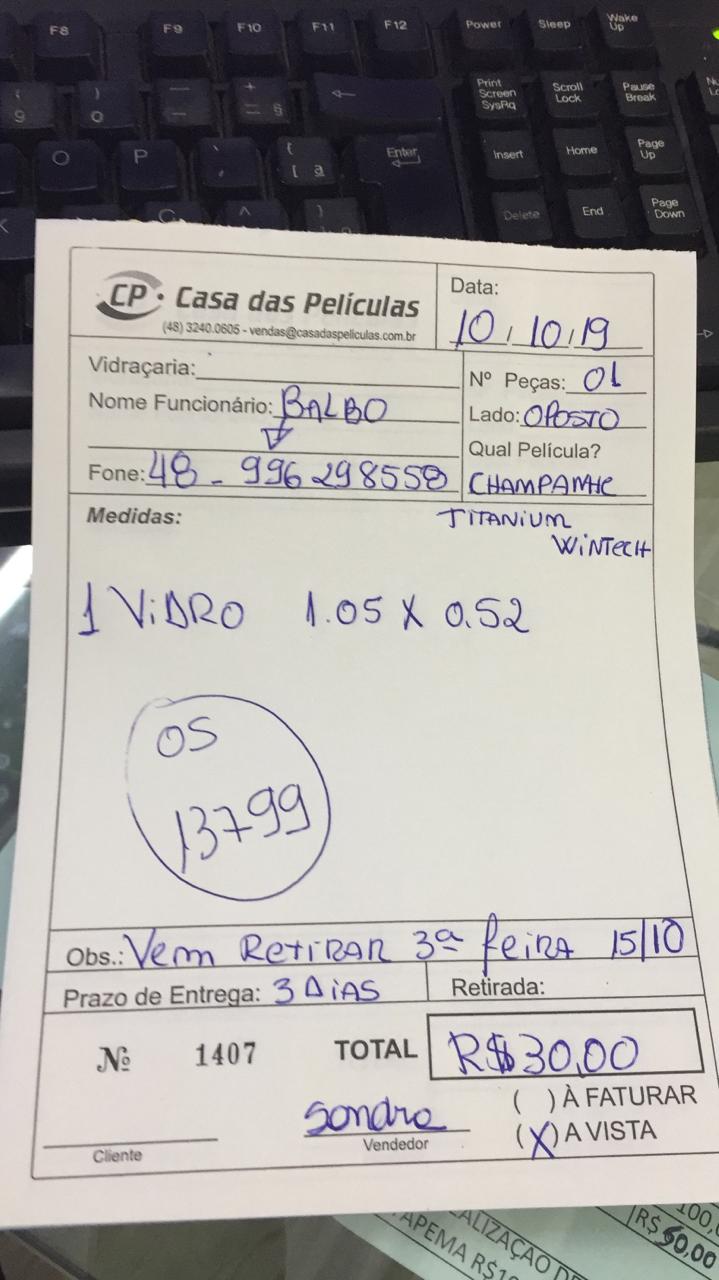 F8 F9 F10 F11 F12 Power Sleep Wake Up
Print Screen SysRq Scroll Lock Pause Break
O P Enter Insert Home Page Up
Delete End Page Down
CP Casa das Películas
(48) 3240.0605 - vendas@casadaspeliculas.com.br
Data:
10/10/19
Vidraçaria:
Nome Funcionário: BALBO
Fone: 48-996298558
Nº Peças: 01
Lado: OPOSTO
Qual Película?
CHAMPANHE
TITANIUM
WINTECH
Medidas:
1 ViDRO 1.05 X 0.52
OS
13799
Obs.: Vem RETIRAR 3ª feiRA 15/10
Prazo de Entrega: 3 DiAS Retirada:
Nº 1407 TOTAL R$30,00
( ) À FATURAR
(X) A VISTA
Sandra
Vendedor
Cliente
100,
R$ 60,00
ALIZAÇÃO DE
APEMA R$1